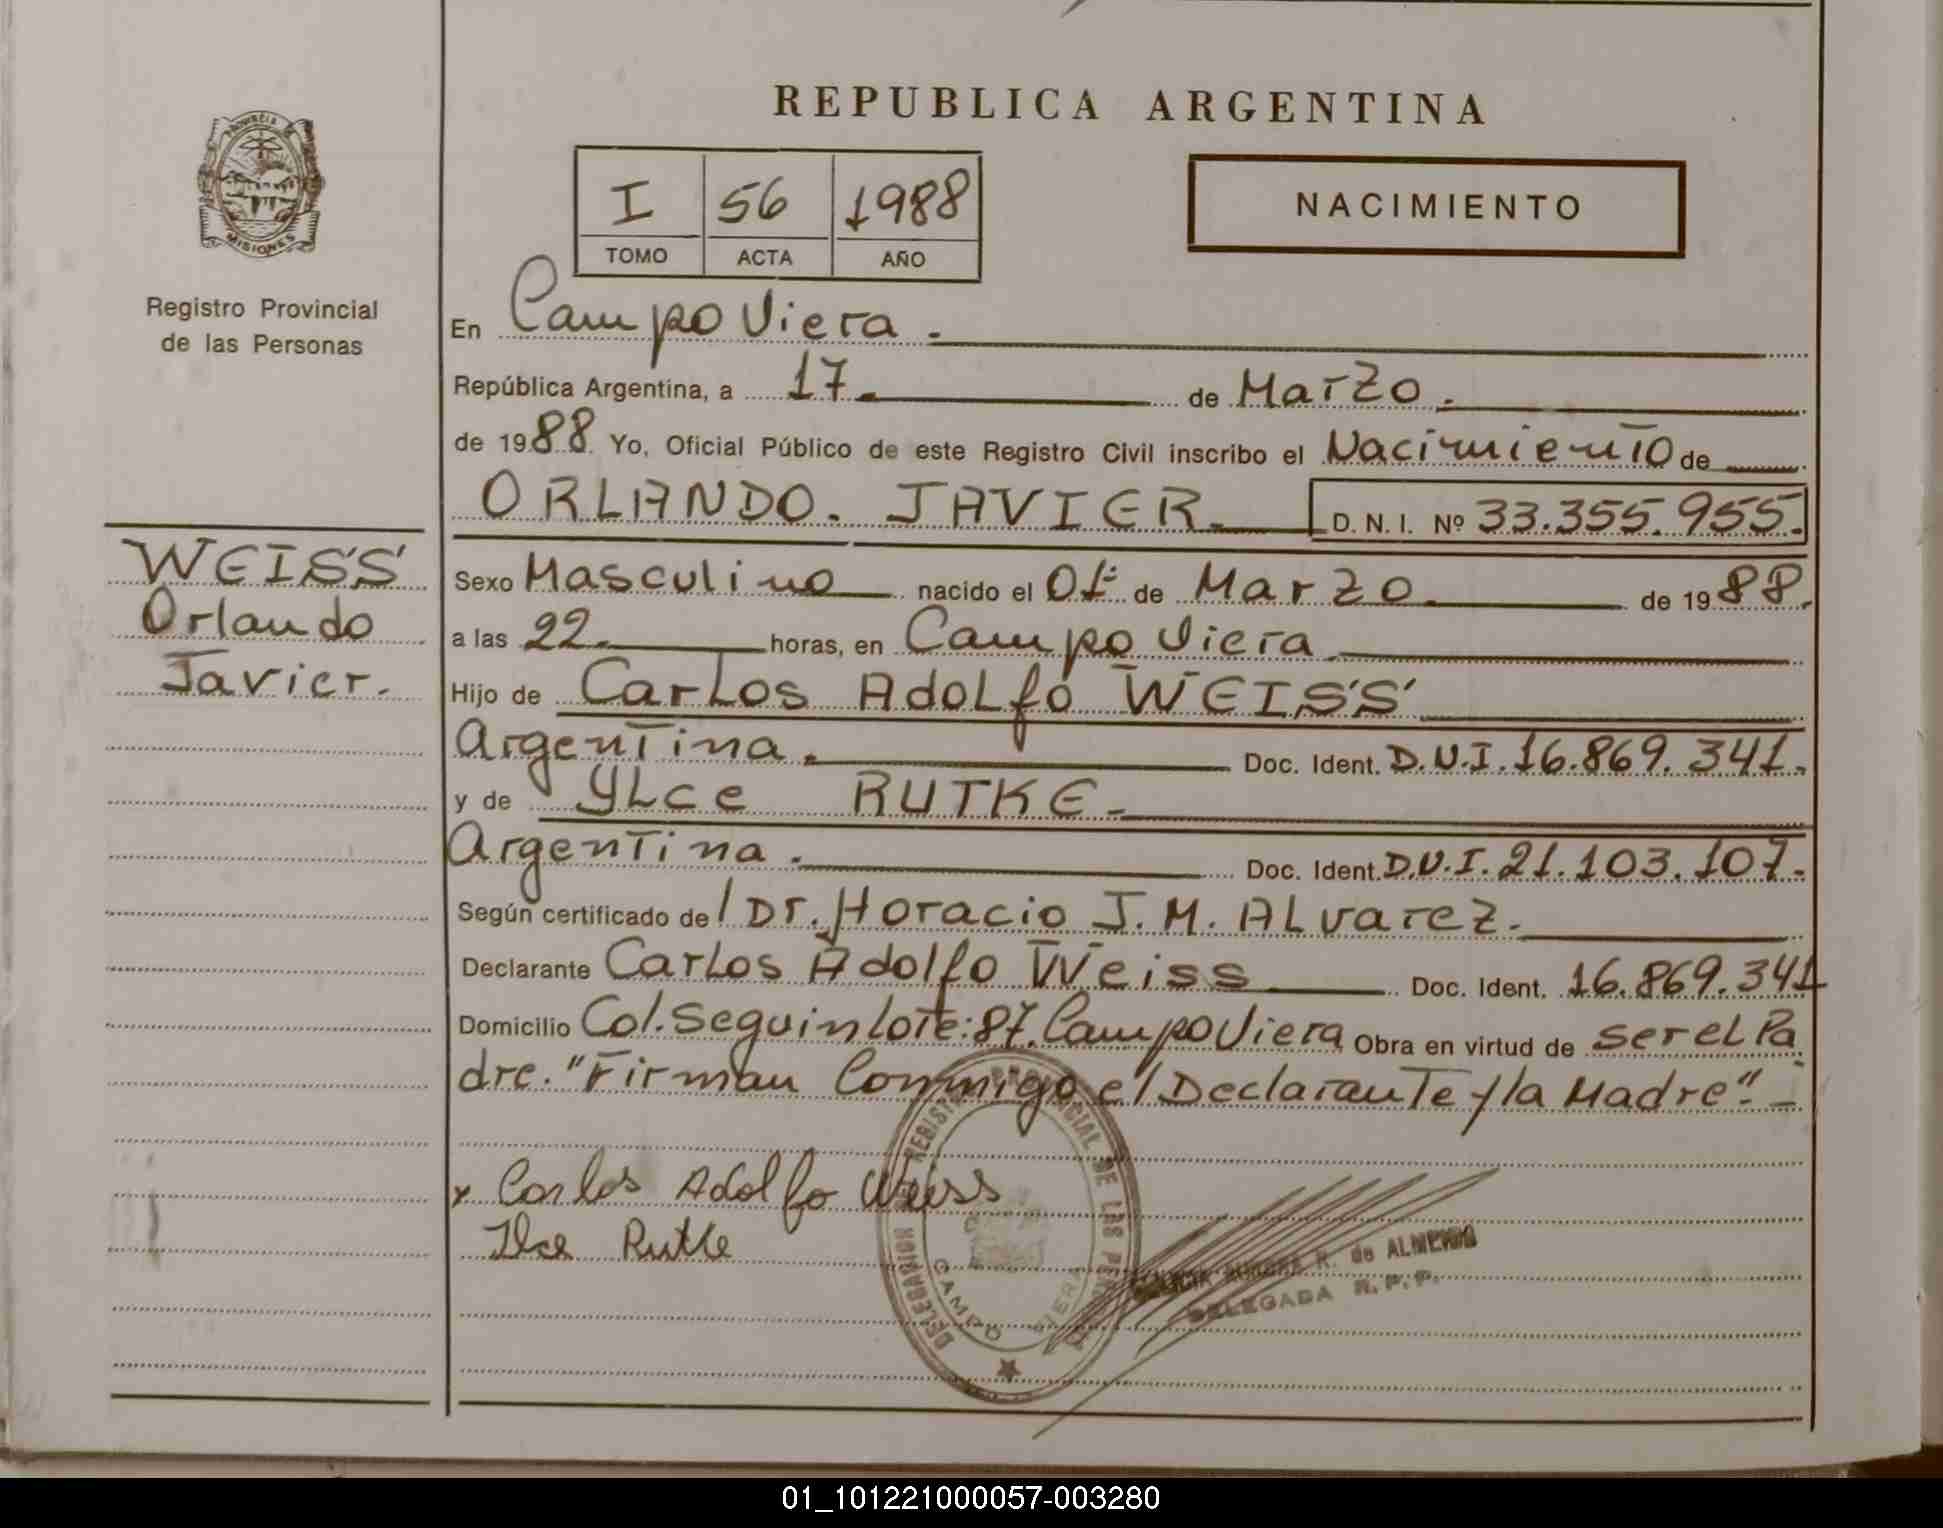 PROVINCIA DE
MISIONES
Registro Provincial
de las Personas
WEISS
Orlando
Javier.
REPUBLICA ARGENTINA
I 56 1988
TOMO ACTA AÑO
NACIMIENTO
En Campo Viera.
República Argentina, a 17. de Marzo.
de 1988 Yo, Oficial Público de este Registro Civil inscribo el Nacimiento de
ORLANDO. JAVIER. D. N. I. Nº 33.355.955.
Sexo Masculino nacido el 01º de Marzo. de 1988.
a las 22. horas, en Campo Viera.
Hijo de Carlos Adolfo WEISS
Argentina. Doc. Ident. D.N.I. 16.869.341.
y de YLce RUTKE.
Argentina. Doc. Ident. D.N.I. 21.103.107.
Según certificado del Dr. Horacio J. M. Alvarez.
Declarante Carlos Adolfo Weiss Doc. Ident. 16.869.341
Domicilio Col. Seguin Lote: 87. Campo Viera Obra en virtud de ser el Pa
dre. "Firman Conmigo el Declarante y la Madre". -
x Carlos Adolfo Weiss
Ilce Rutke
DELEGACION REGISTRO PROVINCIAL DE LAS PERSONAS
CAMPO VIERA
R. de ALMEIDA
DELEGADA R. P. P.
01_101221000057-003280